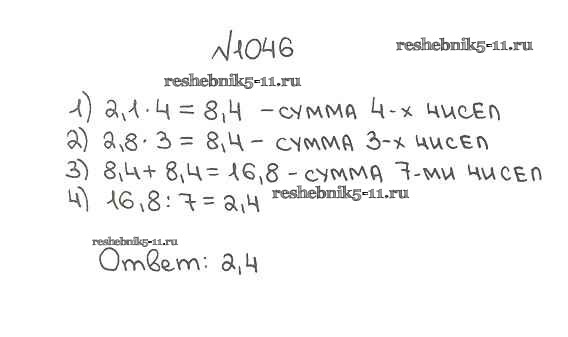 №1046
reshebnik5-11.ru
reshebnik5-11.ru
1) 2,1 · 4 = 8,4 – сумма 4-х чисел
2) 2,8 · 3 = 8,4 – сумма 3-х чисел
3) 8,4 + 8,4 = 16,8 – сумма 7-ми чисел
4) 16,8 : 7 = 2,4
reshebnik5-11.ru
reshebnik5-11.ru
Ответ: 2,4